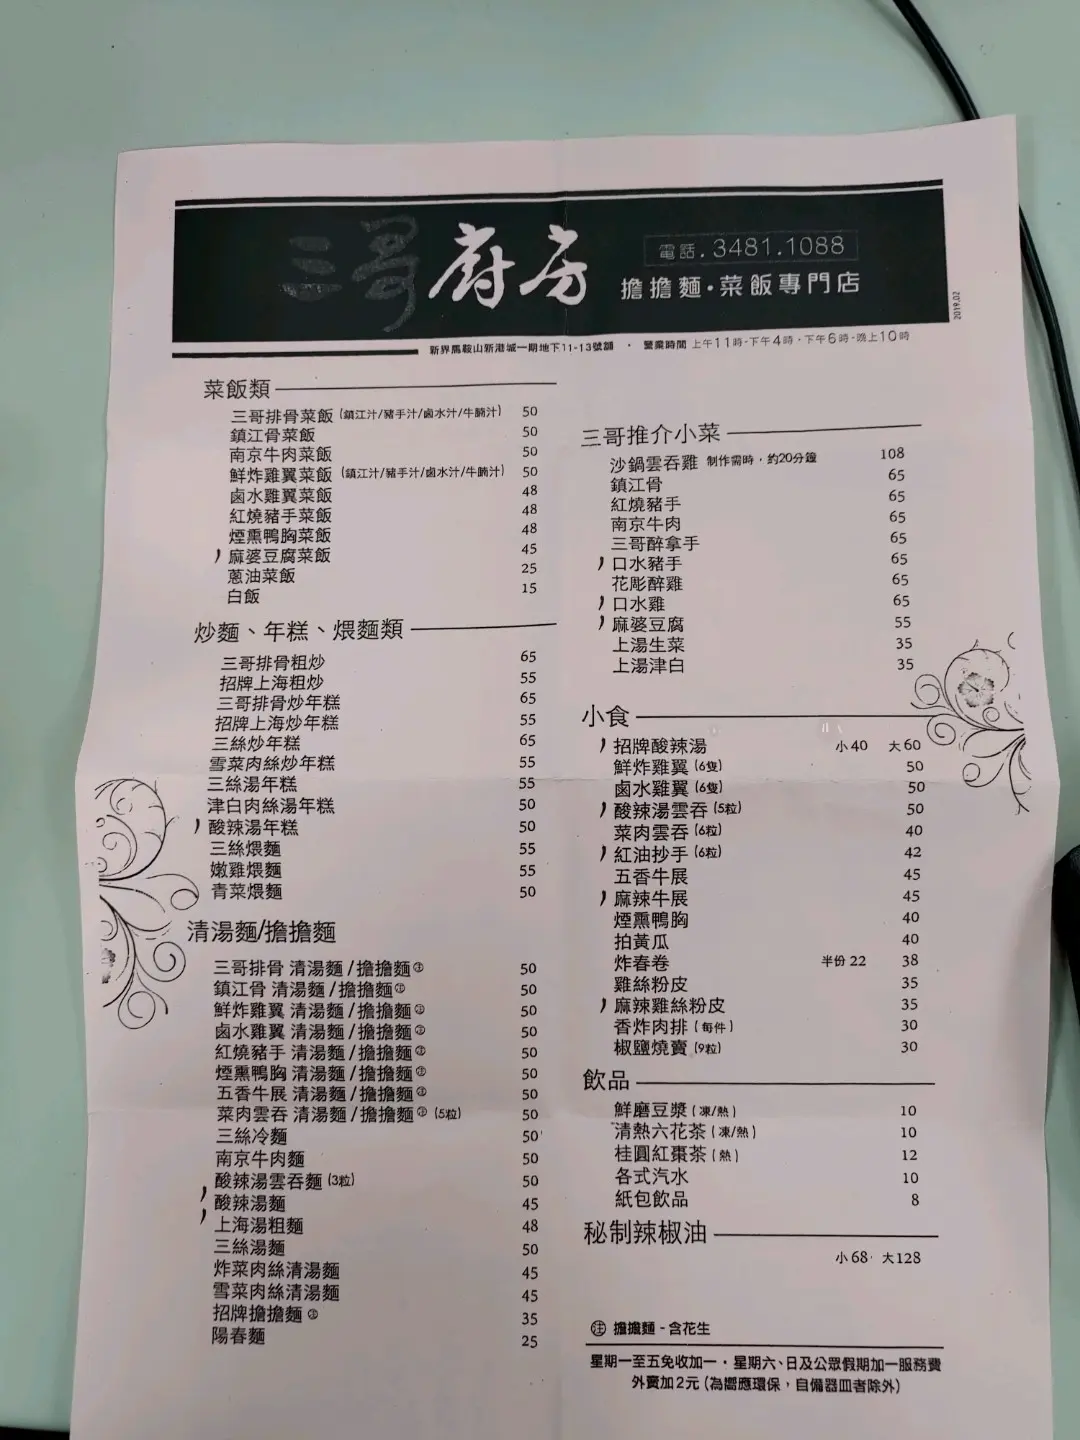 三哥廚房
電話.3481.1088
擔擔麵·菜飯專門店
2019.02
新界馬鞍山新港城一期地下11-13號舖 · 營業時間 上午11時-下午4時,下午6時-晚上10時
菜飯類
三哥排骨菜飯 (鎮江汁/豬手汁/鹵水汁/牛腩汁) 50
鎮江骨菜飯 50
南京牛肉菜飯 50
鮮炸雞翼菜飯 (鎮江汁/豬手汁/鹵水汁/牛腩汁) 50
鹵水雞翼菜飯 48
紅燒豬手菜飯 48
煙熏鴨胸菜飯 48
麻婆豆腐菜飯 45
蔥油菜飯 25
白飯 15
炒麵、年糕、煨麵類
三哥排骨粗炒 65
招牌上海粗炒 55
三哥排骨炒年糕 65
招牌上海炒年糕 55
三絲炒年糕 65
雪菜肉絲炒年糕 55
三絲湯年糕 55
津白肉絲湯年糕 50
酸辣湯年糕 50
三絲煨麵 55
嫩雞煨麵 55
青菜煨麵 50
清湯麵/擔擔麵
三哥排骨 清湯麵/擔擔麵㊟ 50
鎮江骨 清湯麵/擔擔麵㊟ 50
鮮炸雞翼 清湯麵/擔擔麵㊟ 50
鹵水雞翼 清湯麵/擔擔麵㊟ 50
紅燒豬手 清湯麵/擔擔麵㊟ 50
煙熏鴨胸 清湯麵/擔擔麵㊟ 50
五香牛展 清湯麵/擔擔麵㊟ 50
菜肉雲吞 清湯麵/擔擔麵㊟ (5粒) 50
三絲冷麵 50
南京牛肉麵 50
酸辣湯雲吞麵 (3粒) 50
酸辣湯麵 45
上海湯粗麵 48
三絲湯麵 50
炸菜肉絲清湯麵 45
雪菜肉絲清湯麵 45
招牌擔擔麵㊟ 35
陽春麵 25
三哥推介小菜
沙鍋雲吞雞 制作需時,約20分鐘 108
鎮江骨 65
紅燒豬手 65
南京牛肉 65
三哥醉拿手 65
口水豬手 65
花彫醉雞 65
口水雞 65
麻婆豆腐 55
上湯生菜 35
上湯津白 35
小食
招牌酸辣湯 小40 大60
鮮炸雞翼 (6隻) 50
鹵水雞翼 (6隻) 50
酸辣湯雲吞 (5粒) 50
菜肉雲吞 (6粒) 40
紅油抄手 (6粒) 42
五香牛展 45
麻辣牛展 45
煙熏鴨胸 40
拍黃瓜 40
炸春卷 半份22 38
雞絲粉皮 35
麻辣雞絲粉皮 35
香炸肉排 (每件) 30
椒鹽燒賣 (9粒) 30
飲品
鮮磨豆漿 (凍/熱) 10
清熱六花茶 (凍/熱) 10
桂圓紅棗茶 (熱) 12
各式汽水 10
紙包飲品 8
秘制辣椒油
小68 大128
㊟ 擔擔麵-含花生
星期一至五免收加一·星期六、日及公眾假期加一服務費
外賣加2元 (為嚮應環保,自備器皿者除外)